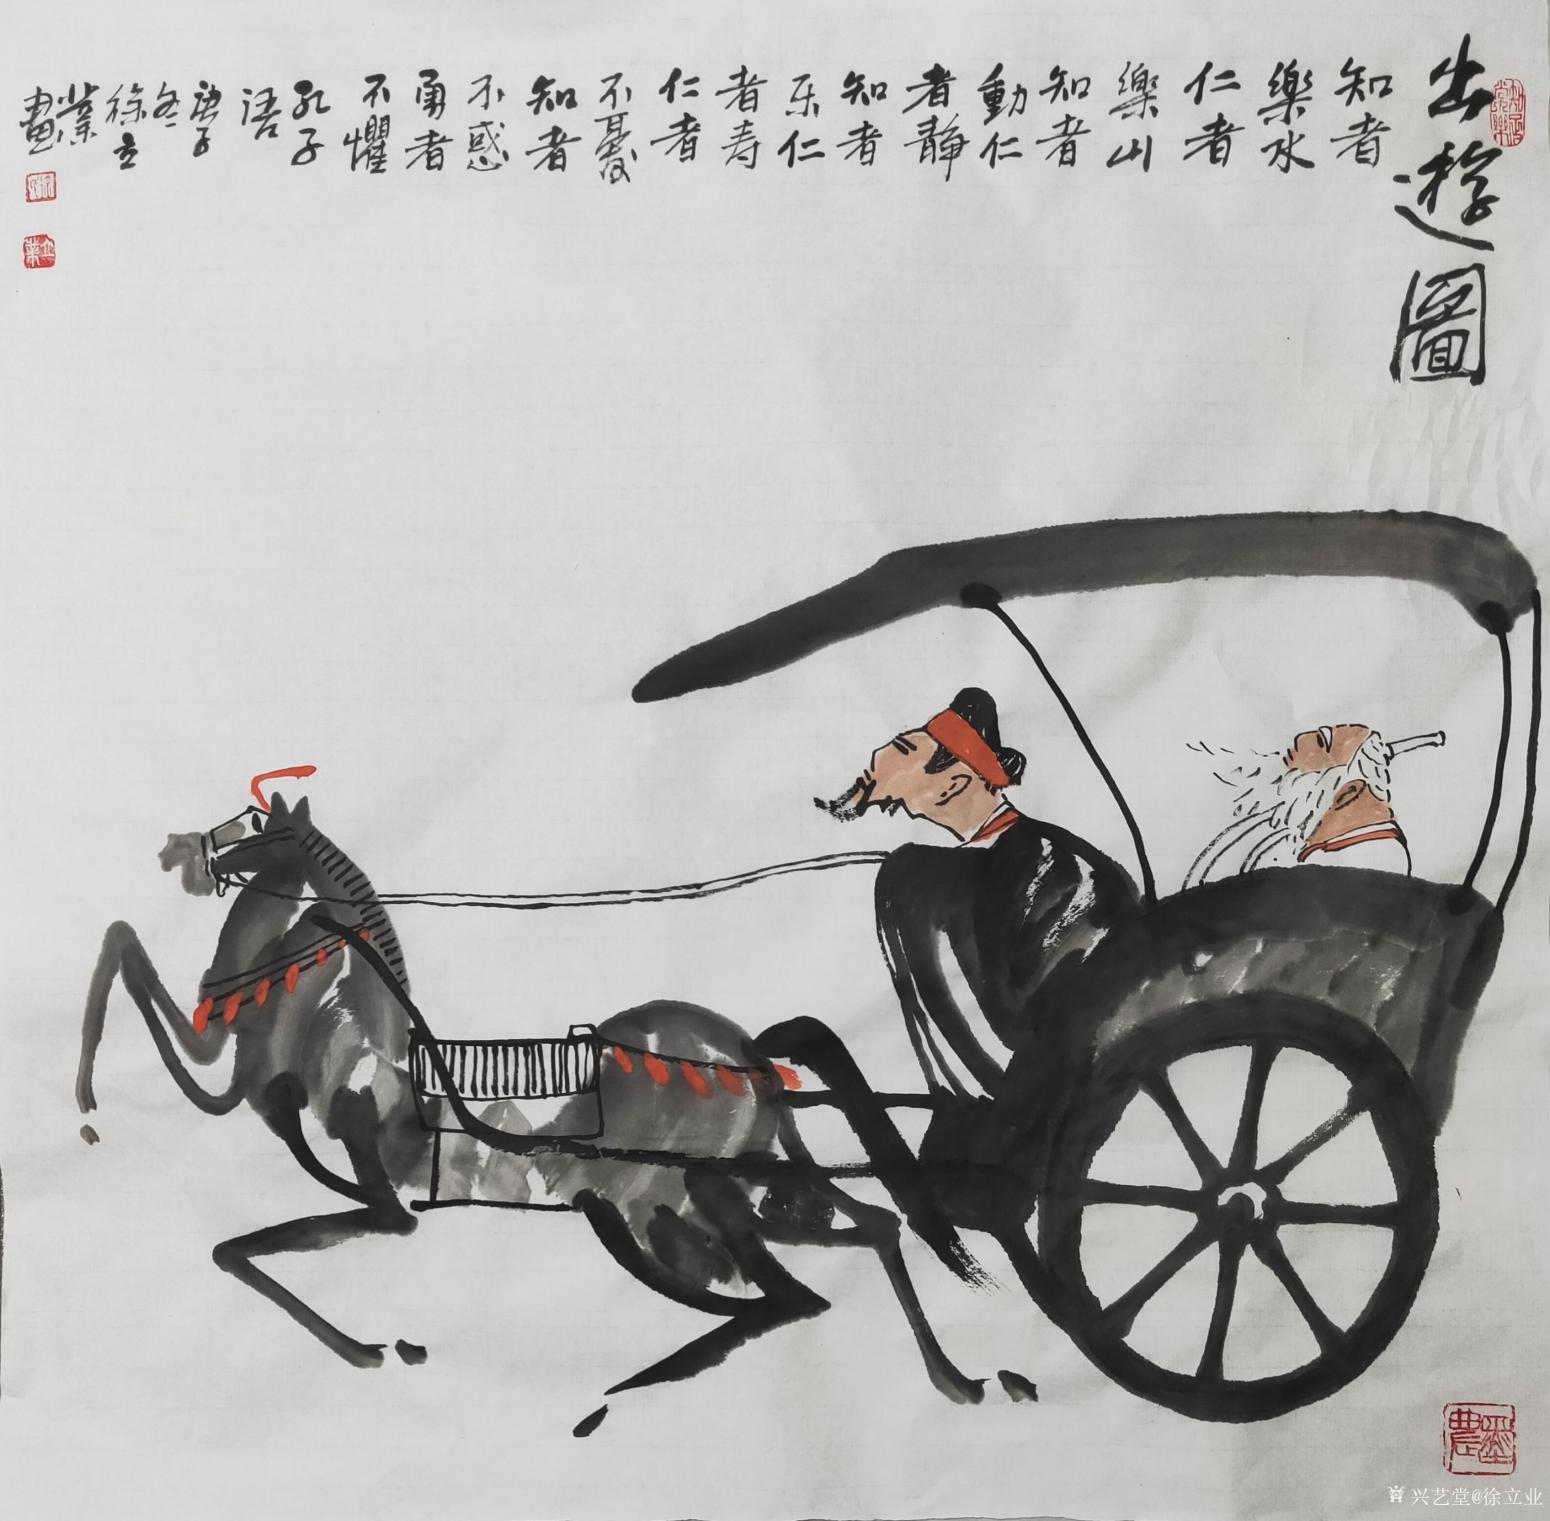 出遊圖
知者
樂水
仁者
樂山
知者
動仁
者靜
知者
乐仁
者寿
仁者
不憂
知者
不惑
勇者
不懼
孔子
語
庚子
冬
徐立
業
畫
立業
墨農
兴艺堂@徐立业